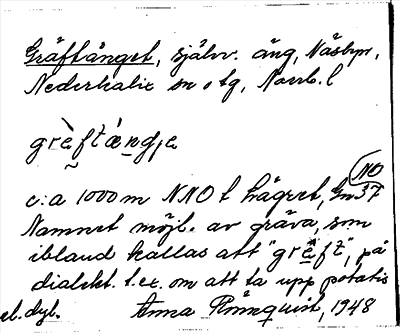 Gräftänget, självv. äng, Näsbyn,
Nederkalix sn o tg, Norrb. l
grèftæŋgjɛ
c:a 1000 m NNO t hägnet, Gm 37 NO
Namnet möjl. av gräva, som
ibland kallas att "grɛ̂ft", på
dialekt. t.ex. om att ta upp potatis
el. dyl. Anna Rönnquist, 1948